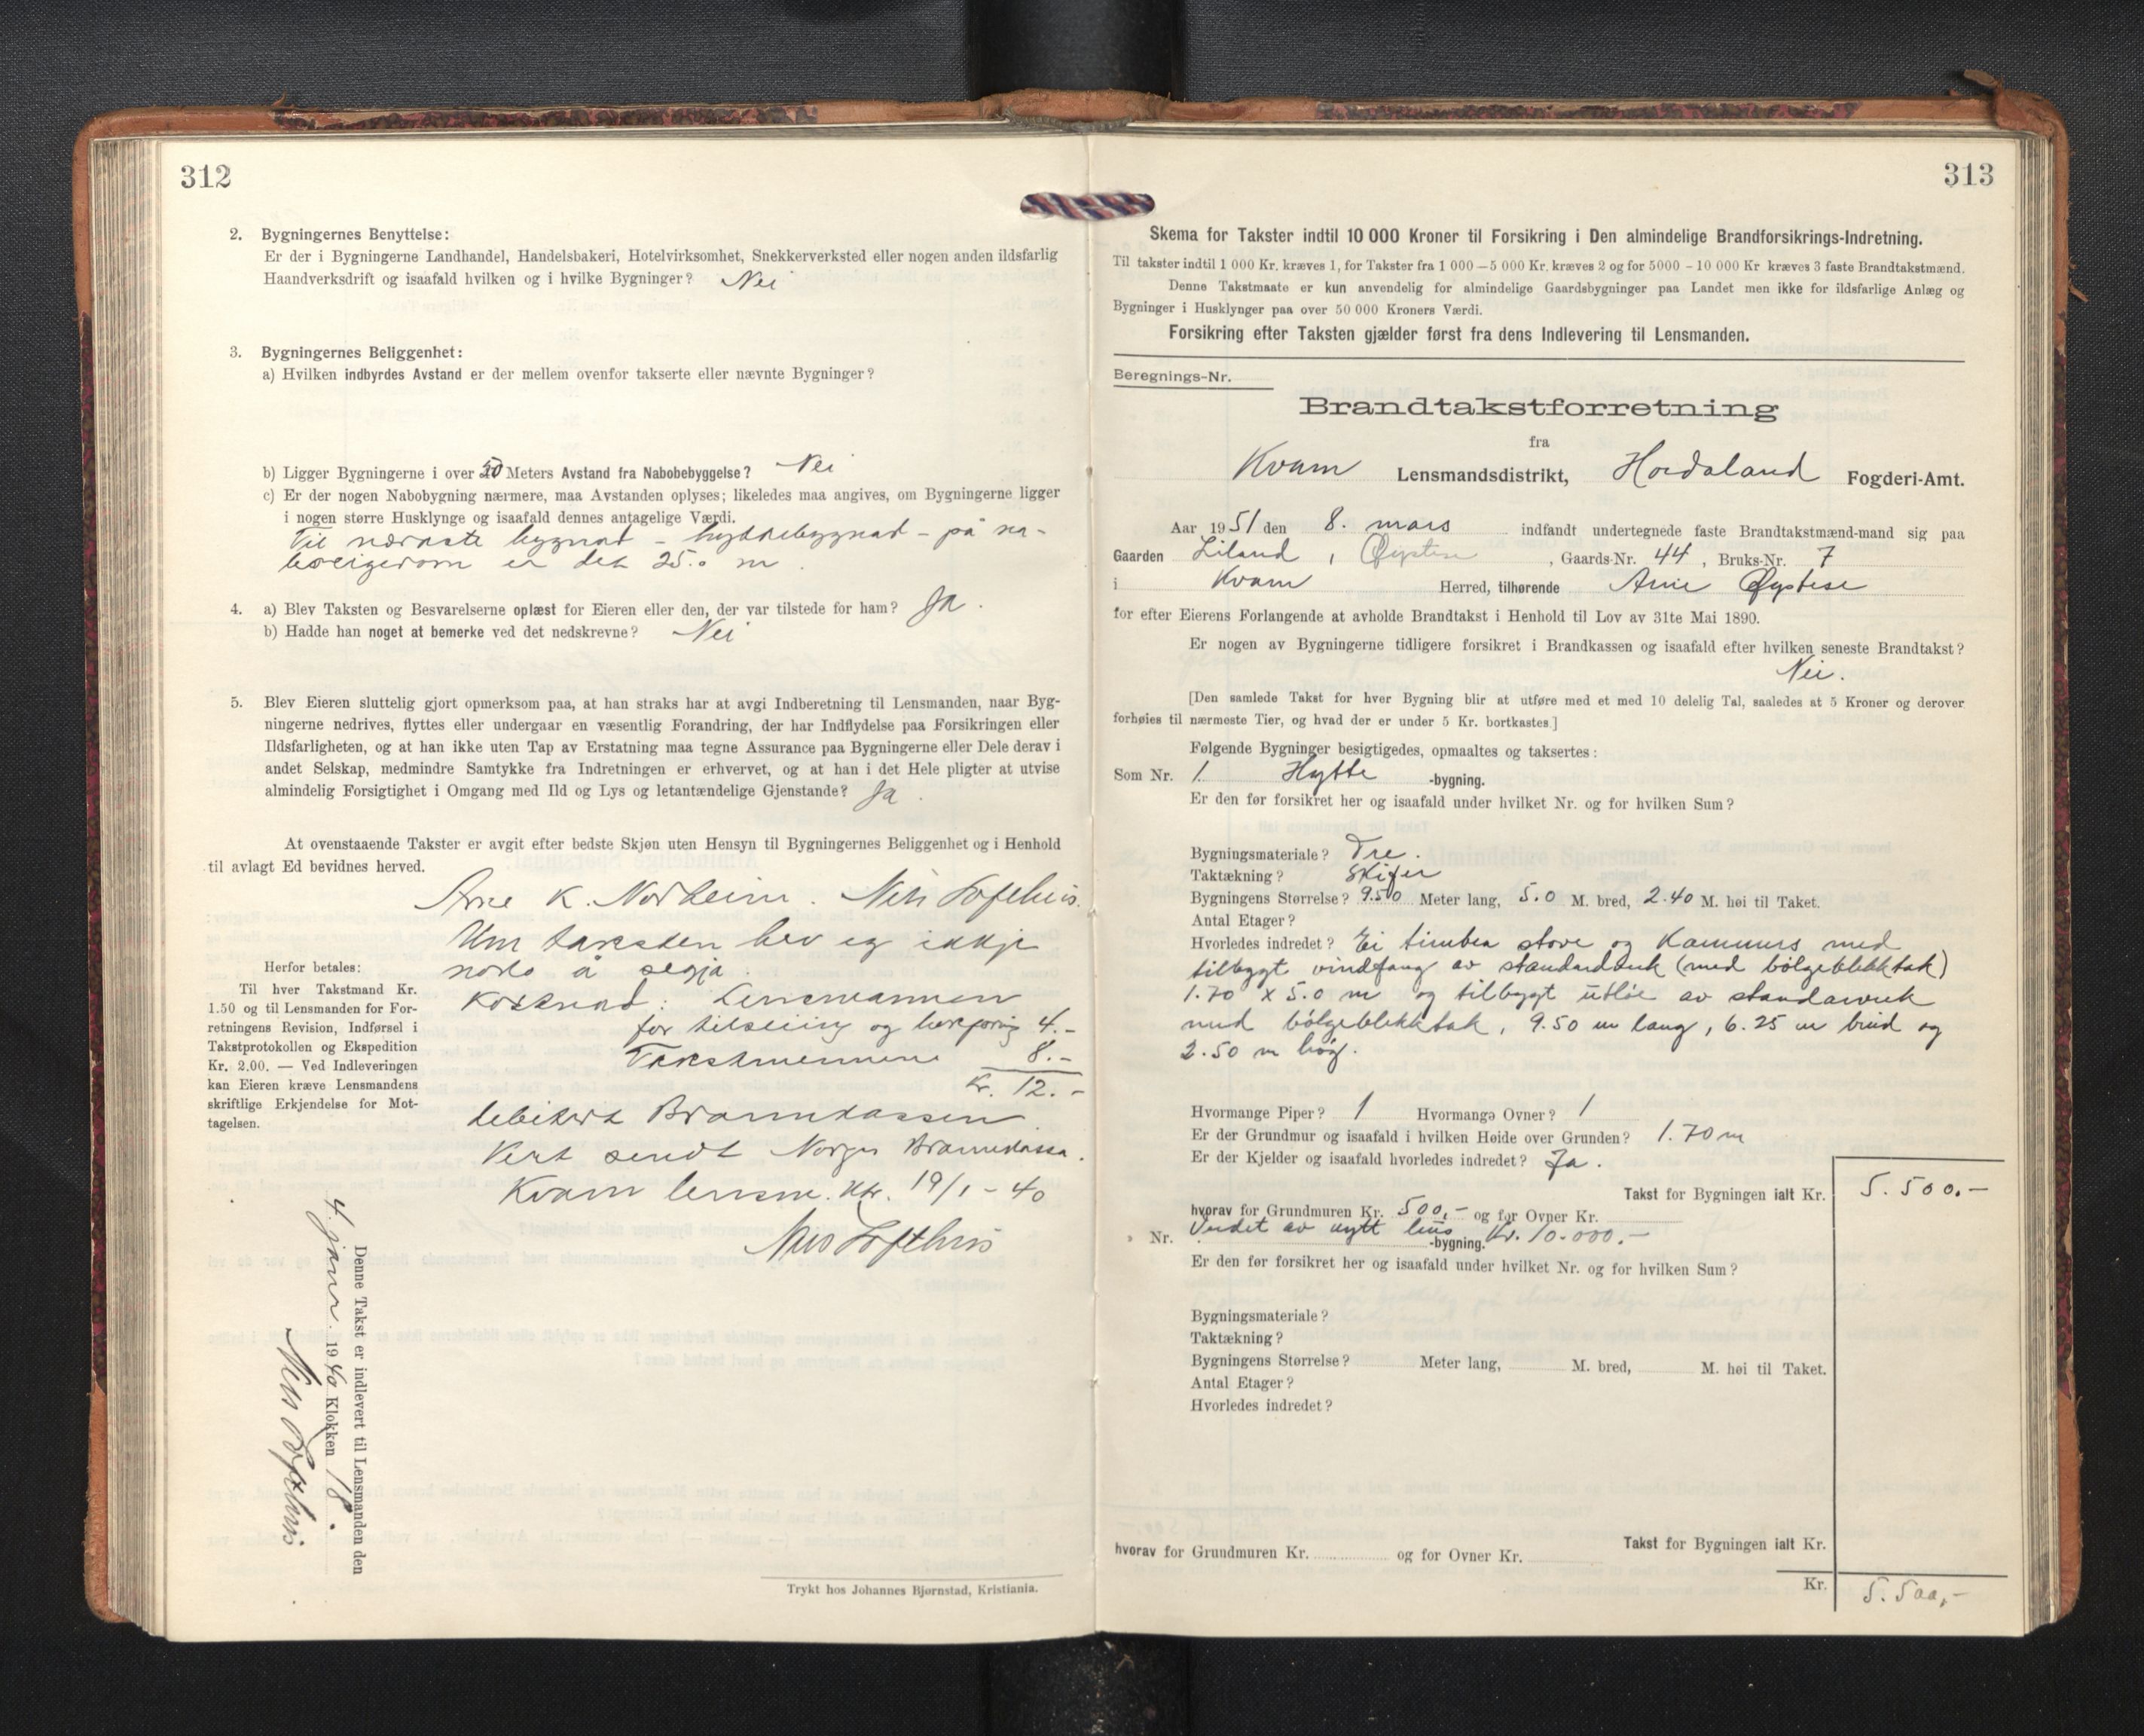 312
2. Bygningernes Benyttelse:
Er der i Bygningerne Landhandel, Handelsbakeri, Hotelvirksomhet, Snekkerverksted eller nogen anden ildsfarlig
Haandverksdrift og isaafald hvilken og i hvilke Bygninger? Nei
3. Bygningernes Beliggenhet:
a) Hvilken indbyrdes Avstand er der mellem ovenfor takserte eller nævnte Bygninger?
b) Ligger Bygningerne i over 50 Meters Avstand fra Nabobebyggelse? Nei
c) Er der nogen Nabobygning nærmere, maa Avstanden oplyses; likeledes maa angives, om Bygningerne ligger
i nogen større Husklynge og isaafald dennes antagelige Værdi.
Til nærmste bygnad - hyttebygnad - på na-
boeigedom er det 25.0 m.
4. a) Blev Taksten og Besvarelserne oplæst for Eieren eller den, der var tilstede for ham? Ja.
b) Hadde han noget at bemerke ved det nedskrevne? Nei
5. Blev Eieren sluttelig gjort opmerksom paa, at han straks har at avgi Indberetning til Lensmanden, naar Byg-
ningerne nedrives, flyttes eller undergaar en væsentlig Forandring, der har Indflydelse paa Forsikringen eller
Ildsfarligheten, og at han ikke uten Tap av Erstatning maa tegne Assurance paa Bygningerne eller Dele derav i
andet Selskap, medmindre Samtykke fra Indretningen er erhvervet, og at han i det Hele pligter at utvise
almindelig Forsigtighet i Omgang med Ild og Lys og letantændelige Gjenstande? Ja.
At ovenstaaende Takster er avgit efter bedste Skjøn uten Hensyn til Bygningernes Beliggenhet og i Henhold
til avlagt Ed bevidnes herved.
Arne K. Nordheim. Nils Tofthus.
Um taksten hev eg ikkje
noko å segja.
Kostnad: Lensmannen
for tilseiing og bokføring 4.-
Takstmennene 8.-
Kr. 12.-
debitert Brannkassen
Vert sendt Norges Brannkassa.
Kvam lensm. ktr. 19/1-40
Nils Tofthus
Herfor betales:
Til hver Takstmand Kr.
1.50 og til Lensmanden for For-
retningens Revision, Indførsel i
Takstprotokollen og Ekspedition
Kr. 2.00. — Ved Indleveringen
kan Eieren kræve Lensmandens
skriftlige Erkjendelse for Mot-
tagelsen.
Denne Takst er indlevert til Lensmanden den
4. januar. 1940 Klokken 18.
Nils Tofthus
Trykt hos Johannes Bjørnstad, Kristiania.
313
Skema for Takster indtil 10 000 Kroner til Forsikring i Den almindelige Brandforsikrings-Indretning.
Til takster indtil 1 000 Kr. kræves 1, for Takster fra 1 000 — 5 000 Kr. kræves 2 og for 5000 – 10 000 Kr kræves 3 faste Brandtakstmænd.
Denne Takstmaate er kun anvendelig for almindelige Gaardsbygninger paa Landet men ikke for ildsfarlige Anlæg og
Bygninger i Husklynger paa over 50 000 Kroners Værdi.
Forsikring efter Taksten gjælder først fra dens Indlevering til Lensmanden.
Beregnings-Nr.
Brandtakstforretning
fra
Kvam Lensmandsdistrikt, Hordaland Fogderi-Amt.
Aar 1951 den 8. mars indfandt undertegnede faste Brandtakstmænd-mand sig paa
Gaarden Liland, Øystese, Gaards-Nr. 44, Bruks-Nr. 7
i Kvam Herred, tilhørende Arne Øystese
for efter Eierens Forlangende at avholde Brandtakst i Henhold til Lov av 31te Mai 1890.
Er nogen av Bygningerne tidligere forsikret i Brandkassen og isaafald efter hvilken seneste Brandtakst?
Nei.
[Den samlede Takst for hver Bygning blir at utføre med et med 10 delelig Tal, saaledes at 5 Kroner og derover
forhøies til nærmeste Tier, og hvad der er under 5 Kr. bortkastes.]
Følgende Bygninger besigtigedes, opmaaltes og taksertes:
Som Nr. 1 Hytte -bygning.
Er den før forsikret her og isaafald under hvilket Nr. og for hvilken Sum?
Bygningsmateriale? Tre.
Taktækning? Skifer
Bygningens Størrelse? 9.50 Meter lang, 5.0 M. bred, 2.40 M. høi til Taket.
Antal Etager?
Hvorledes indredet? Ei timbra stove og kammers med
tilbygt vindfang av standardverk (med bølgeblekktak)
1.70 x 5.0 m og tilbygt utløe av standarverk
med bølgeblekktak, 9.50 m lang, 6.25 m breid og
2.50 m høg.
Hvormange Piper? 1 Hvormange Ovner? 1
Er der Grundmur og isaafald i hvilken Høide over Grunden? 1.70 m
Er der Kjelder og isaafald hvorledes indredet? Ja.
Takst for Bygningen ialt Kr. 5.500.-
hvorav for Grundmuren Kr. 500,- og for Ovner Kr.
Verdet av nytt hus Kr. 10.000.-
Nr. -bygning.
Er den før forsikret her og isaafald under hvilket Nr. og for hvilken Sum?
Bygningsmateriale?
Taktækning?
Bygningens Størrelse? Meter lang, M. bred, M. høi til Taket.
Antal Etager?
Hvorledes indredet?
Takst for Bygningen ialt Kr.
hvorav for Grundmuren Kr. og for Ovner Kr.
Kr. 5.500,-